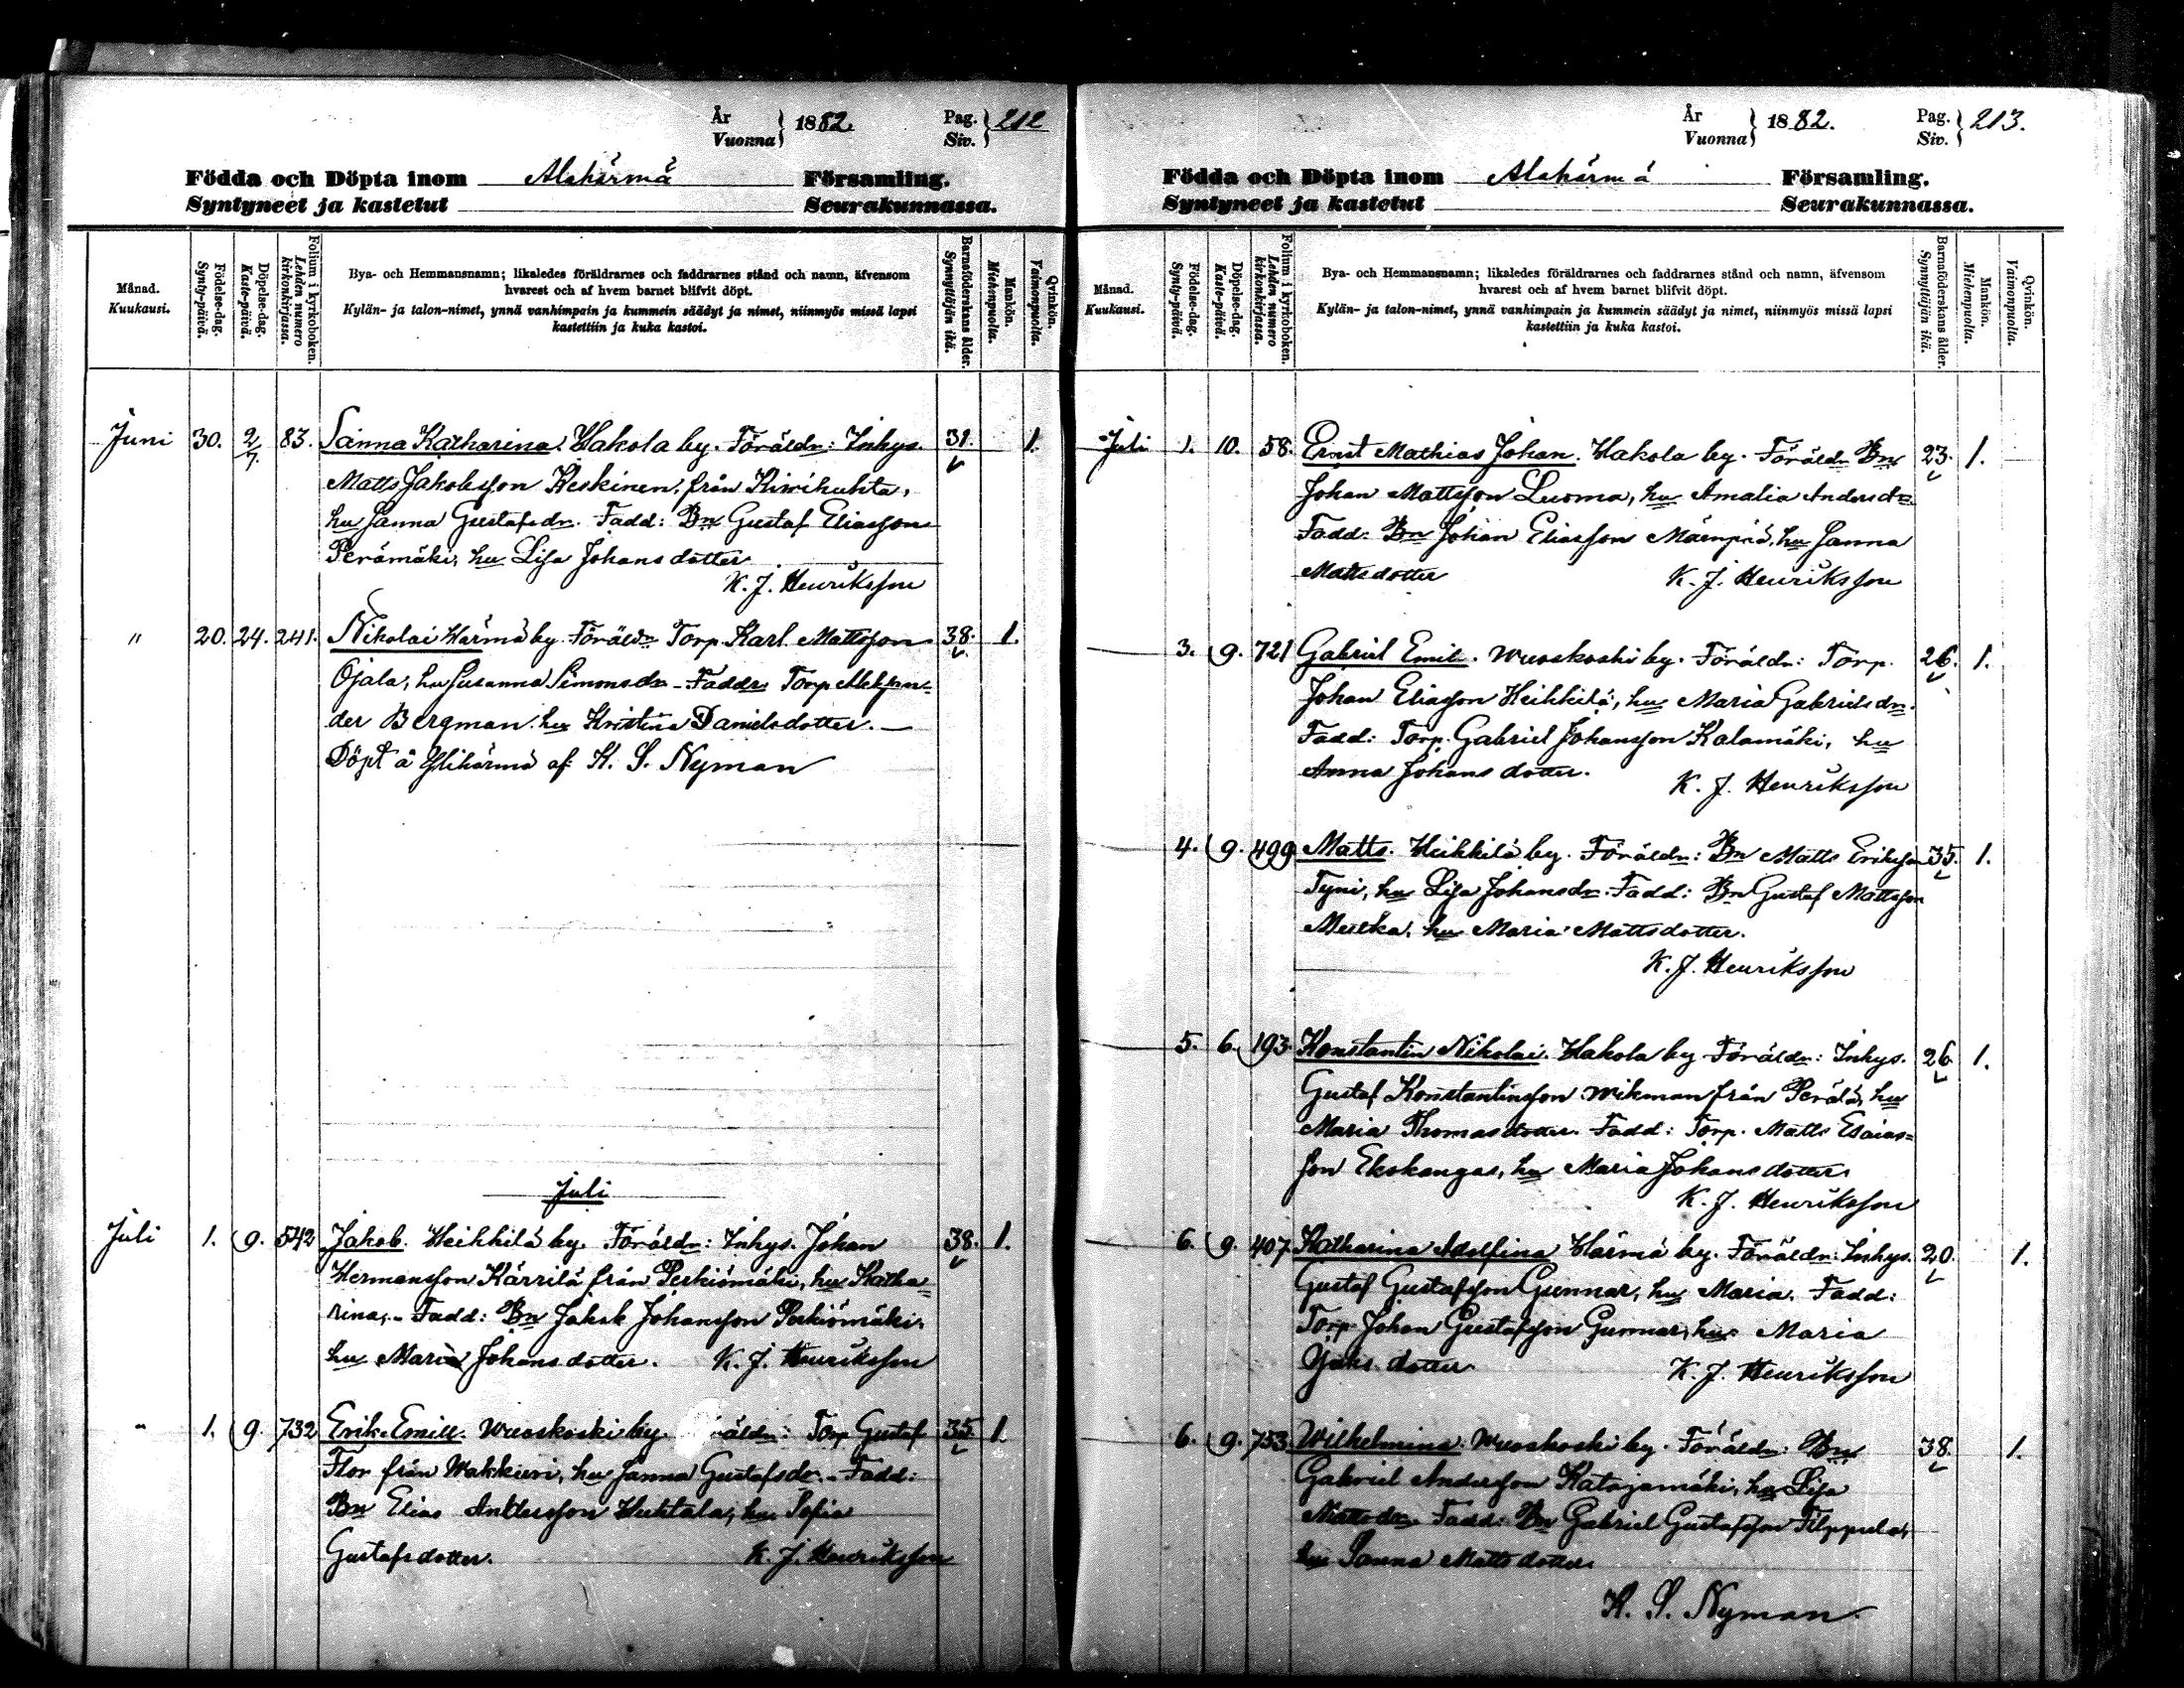 År
Vuonna } 1882. Pag.
Siv. } 212
Födda och Döpta inom Alahärmä Församling.
Syntyneet ja kastetut Seurakunnassa.
Månad.
Kuukausi.
Födelse-dag.
Synty-päivä.
Döpelse-dag.
Kaste-päivä.
Folium i kyrkoboken.
Lehden numero
kirkonkirjassa.
Bya- och Hemmansnamn; likaledes föräldrarnes och faddrarnes stånd och namn, äfvensom
hvarest och af hvem barnet blifvit döpt.
Kylän- ja talon-nimet, ynnä vanhimpain ja kummein säädyt ja nimet, niinmyös missä lapsi
kastettiin ja kuka kastoi.
Barnaföderskans ålder.
Synnyttäjän ikä.
Mankön.
Miehenpuolta.
Qvinkön.
Vaimonpuolta.
Juni 30. 2/7. 83. Sanna Katharina. Hakola by. Föräldr: Inhys. 31. 1.
Matts Jakobsson Keskinen, från Kiwihuhta,
hu Sanna Gustafsdr. Fadd: Bn Gustaf Eliasson
Perämäki, hu Lisa Johansdotter
K. J. Henriksson
" 20. 24. 241. Nikolai Härmä by. Föräldr Torp. Karl Mattsson 38. 1.
Ojala, hu Susanna Simonsdr - Faddr. Torp Aleksan-
der Bergman. hu Kristina Danielsdotter. —
Döpt å Ylihärmä af K. S. Nyman
Juli
Juli 1. 9. 542 Jakob. Heikkilä by. Föräldr: Inhys. Johan 38. 1.
Hermansson Kärrilä från Perkiömäki, hu Katha-
rina, - Fadd: Bn Jakob Johansson Perkiömäki,
hu Maria Johansdotter. K. J. Henriksson
" 1. 9. 732 Erik Emill. Wuoskoski by. äldr: Torp Gustaf 35. 1.
Flor från Wakkuri, hu Sanna Gustafsdr. - Fadd:
Bn Elias Andersson Huhtala, hu Sofia
Gustafsdotter. K. J. Henriksson
År
Vuonna } 1882. Pag.
Siv. } 213.
Födda och Döpta inom Alahärmä Församling.
Syntyneet ja kastetut Seurakunnassa.
Månad.
Kuukausi.
Födelse-dag.
Synty-päivä.
Döpelse-dag.
Kaste-päivä.
Folium i kyrkoboken.
Lehden numero
kirkonkirjassa.
Bya- och Hemmansnamn; likaledes föräldrarnes och faddrarnes stånd och namn, äfvensom
hvarest och af hvem barnet blifvit döpt.
Kylän- ja talon-nimet, ynnä vanhimpain ja kummein säädyt ja nimet, niinmyös missä lapsi
kastettiin ja kuka kastoi.
Barnaföderskans ålder.
Synnyttäjän ikä.
Mankön.
Miehenpuolta.
Qvinkön.
Vaimonpuolta.
Juli 1. 10. 58. Ernst Mathias Johan. Hakola by. Föräldr Bn 23. 1.
Johan Mattsson Luoma, hu Amalia Andersdr.
Fadd: Bn Johan Eliasson Mäenpää, hu Sanna
Mattsdotter K. J. Henriksson
3. 9. 721 Gabriel Emil. Wuoskoski by. Föräldr: Torp. 26. 1.
Johan Eliasson Heikkilä, hu Maria Gabrielsdr.
Fadd: Torp. Gabriel Johansson Kalamäki, hu
Anna Johansdotter. K. J. Henriksson
4. 9. 499 Matts. Heikkilä by. Föräldr: Bn Matts Eriksson 35. 1.
Tyni, hu Lisa Johansdr. Fadd: Bn Gustaf Mattsson
hu Maria Mattsdotter.
K. J. Henriksson
5. 6. 193. Konstantin Nikolai. Hakola by Föräldr: Inhys. 26 1.
Gustaf Konstantinsson Wikman från Perälä, hu
Maria Thomasdotter. Fadd: Torp. Matts Esaias-
son Ekokangas, hu Maria Johansdotter.
K. J. Henriksson
6. 9. 407. Katharina Adolfina Härmä by. Föräldr: Inhys. 20. 1.
Gustaf Gustafsson Gunnar, hu Maria. Fadd:
Torp. Johan Gustafsson Gunnar, hu Maria
dotter. K. J. Henriksson
6. 9. 753 Wilhelmina. Wuoskoski by. Föräldr: Bn 38. 1.
Gabriel Andersson Katajamäki, hu Lisa
Mattsdr. Fadd: Bn Gabriel Gustafsson Filppula,
hu Sanna Mattsdotter.
K. S. Nyman.